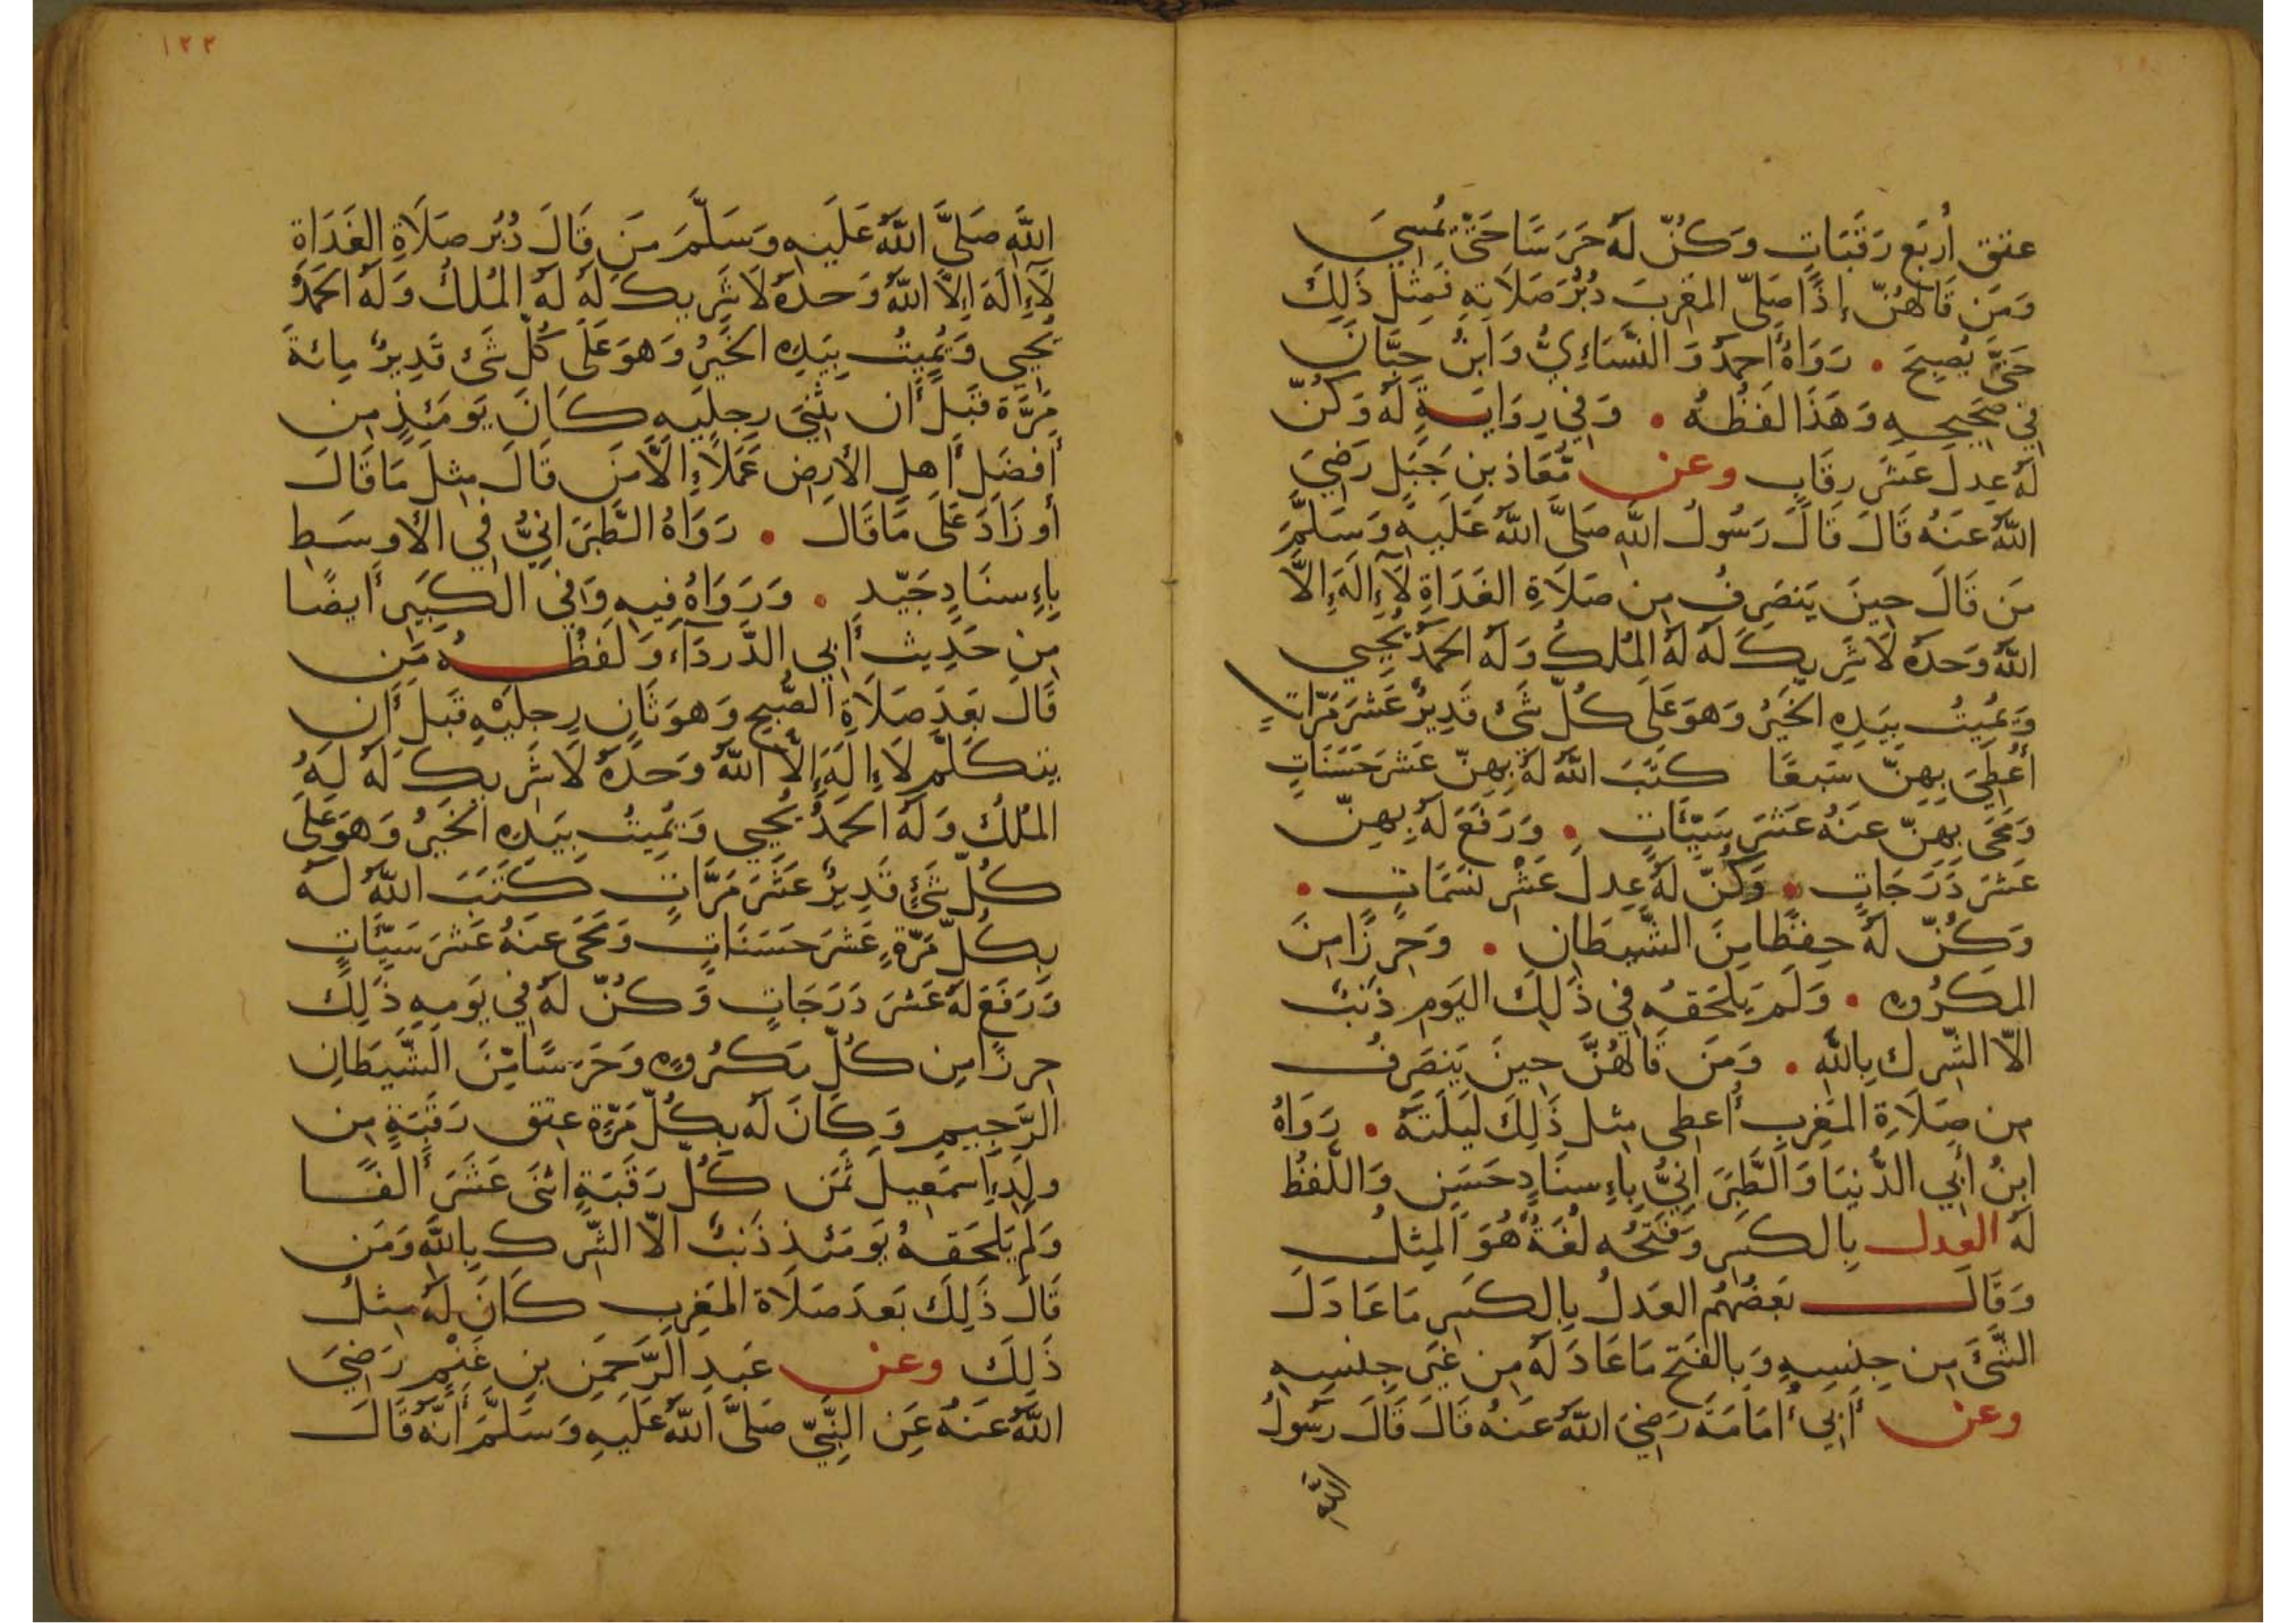 عتق أربع رقبات وكن له حرسا حتى يمسي
ومن قالهن إذا صلى المغرب دبر صلاته فمثل ذلك
حتى يصبح . رواه أحمد والنسائي وابن حبان
في صحيحه وهذا لفظه . وفي رواية له وكن
له عدل عشر رقاب وعن معاذ بن جبل رضي
الله عنه قال قال رسول الله صلى الله عليه وسلم
من قال حين ينصرف من صلاة الغداة لا إله إلا
الله وحده لا شريك له له الملك وله الحمد يحيي
ويميت بيده الخير وهو على كل شئ قدير عشر مرات
أعطي بهن سبعا كتب الله له بهن عشر حسنات
ومحى بهن عنه عشر سيئات . ورفع له بهن
عشر درجات . وكن له عدل عشر نسمات .
وكن له حفظا من الشيطان . وحرزا من
المكروه . ولم يلحقه في ذلك اليوم ذنب
الا الشرك بالله . ومن قالهن حين ينصرف
من صلاة المغرب أعطى مثل ذلك ليلته . رواه
ابن أبي الدنيا والطبراني بإسناد حسن واللفظ
له العدل بالكسر وفتحه لغة هو المثل
وقال بعضهم العدل بالكسر ما عادل
الشئ من جنسه وبالفتح ما عادله من غير جنسه
وعن أبي أمامة رضي الله عنه قال قال رسول
الله
١٢٢
الله صلى الله عليه وسلم من قال دبر صلاة الغداة
لا إله إلا الله وحده لا شريك له له الملك وله الحمد
يحيي ويميت بيده الخير وهو على كل شئ قدير مائة
مرة قبل أن يثني رجليه كان يومئذ من
أفضل أهل الأرض عملا إلا من قال مثل ما قال
أو زاد على ما قال . رواه الطبراني في الأوسط
بإسناد جيد . ورواه فيه وفي الكبير أيضا
من حديث أبي الدرداء ولفظه من
قال بعد صلاة الصبح وهو ثان رجليه قبل أن
يتكلم لا إله إلا الله وحده لا شريك له له
الملك وله الحمد يحيي ويميت بيده الخير وهو على
كل شئ قدير عشر مرات كتب الله له
بكل مرة عشر حسنات ومحى عنه عشر سيئات
ورفع له عشر درجات وكن له في يومه ذلك
حرزا من كل مكروه وحرسا من الشيطان
الرجيم وكان له بكل مرة عتق رقبة من
ولد إسمعيل ثمن كل رقبة اثنى عشر ألفا
ولم يلحقه يومئذ ذنب الا الشرك بالله ومن
قال ذلك بعد صلاة المغرب كان له مثل
ذلك وعن عبد الرحمن بن غنم رضي
الله عنه عن النبي صلى الله عليه وسلم أنه قال